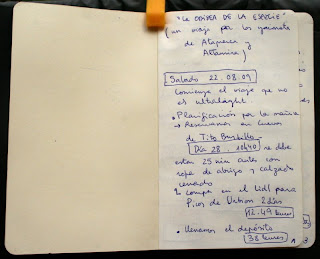 "LA ODISEA DE LA ESPECIE"
(un viaje por los yacimientos
de Atapuerca y
Altamira)
Sábado 22.08.09
Comienza el viaje que no
es ultralight.
• Planificación por la mañana
→ Reservamos en Cuevas
de Tito Bustillo -
Día 28. 10h40 se debe
estar 25 min antes con
ropa de abrigo y calzado
cerrado
compra en el Lidl para
Picos de 2 días
12.49 euros
• Llenamos el depósito
38 euros